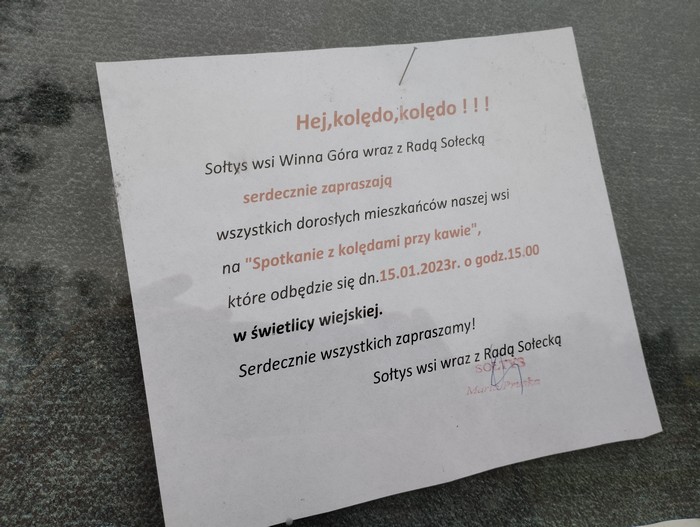 Hej,kolędo,kolędo ! ! !
Sołtys wsi Winna Góra wraz z Radą Sołecką
serdecznie zapraszają
wszystkich dorosłych mieszkańców naszej wsi
na "Spotkanie z kolędami przy kawie",
które odbędzie się dn.15.01.2023r. o godz.15.00
w świetlicy wiejskiej.
Serdecznie wszystkich zapraszamy!
Sołtys wsi wraz z Radą Sołecką
SOŁTYS